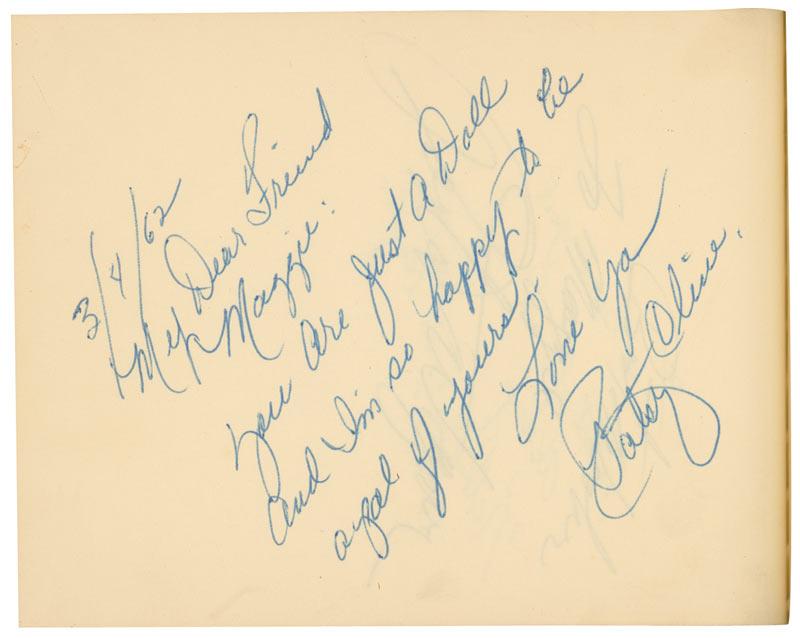 3/4/62
Dear Friend
Maggie:
You are just a Doll
and I'm so happy to be
a pal of yours.
Love Ya
Patsy Cline.